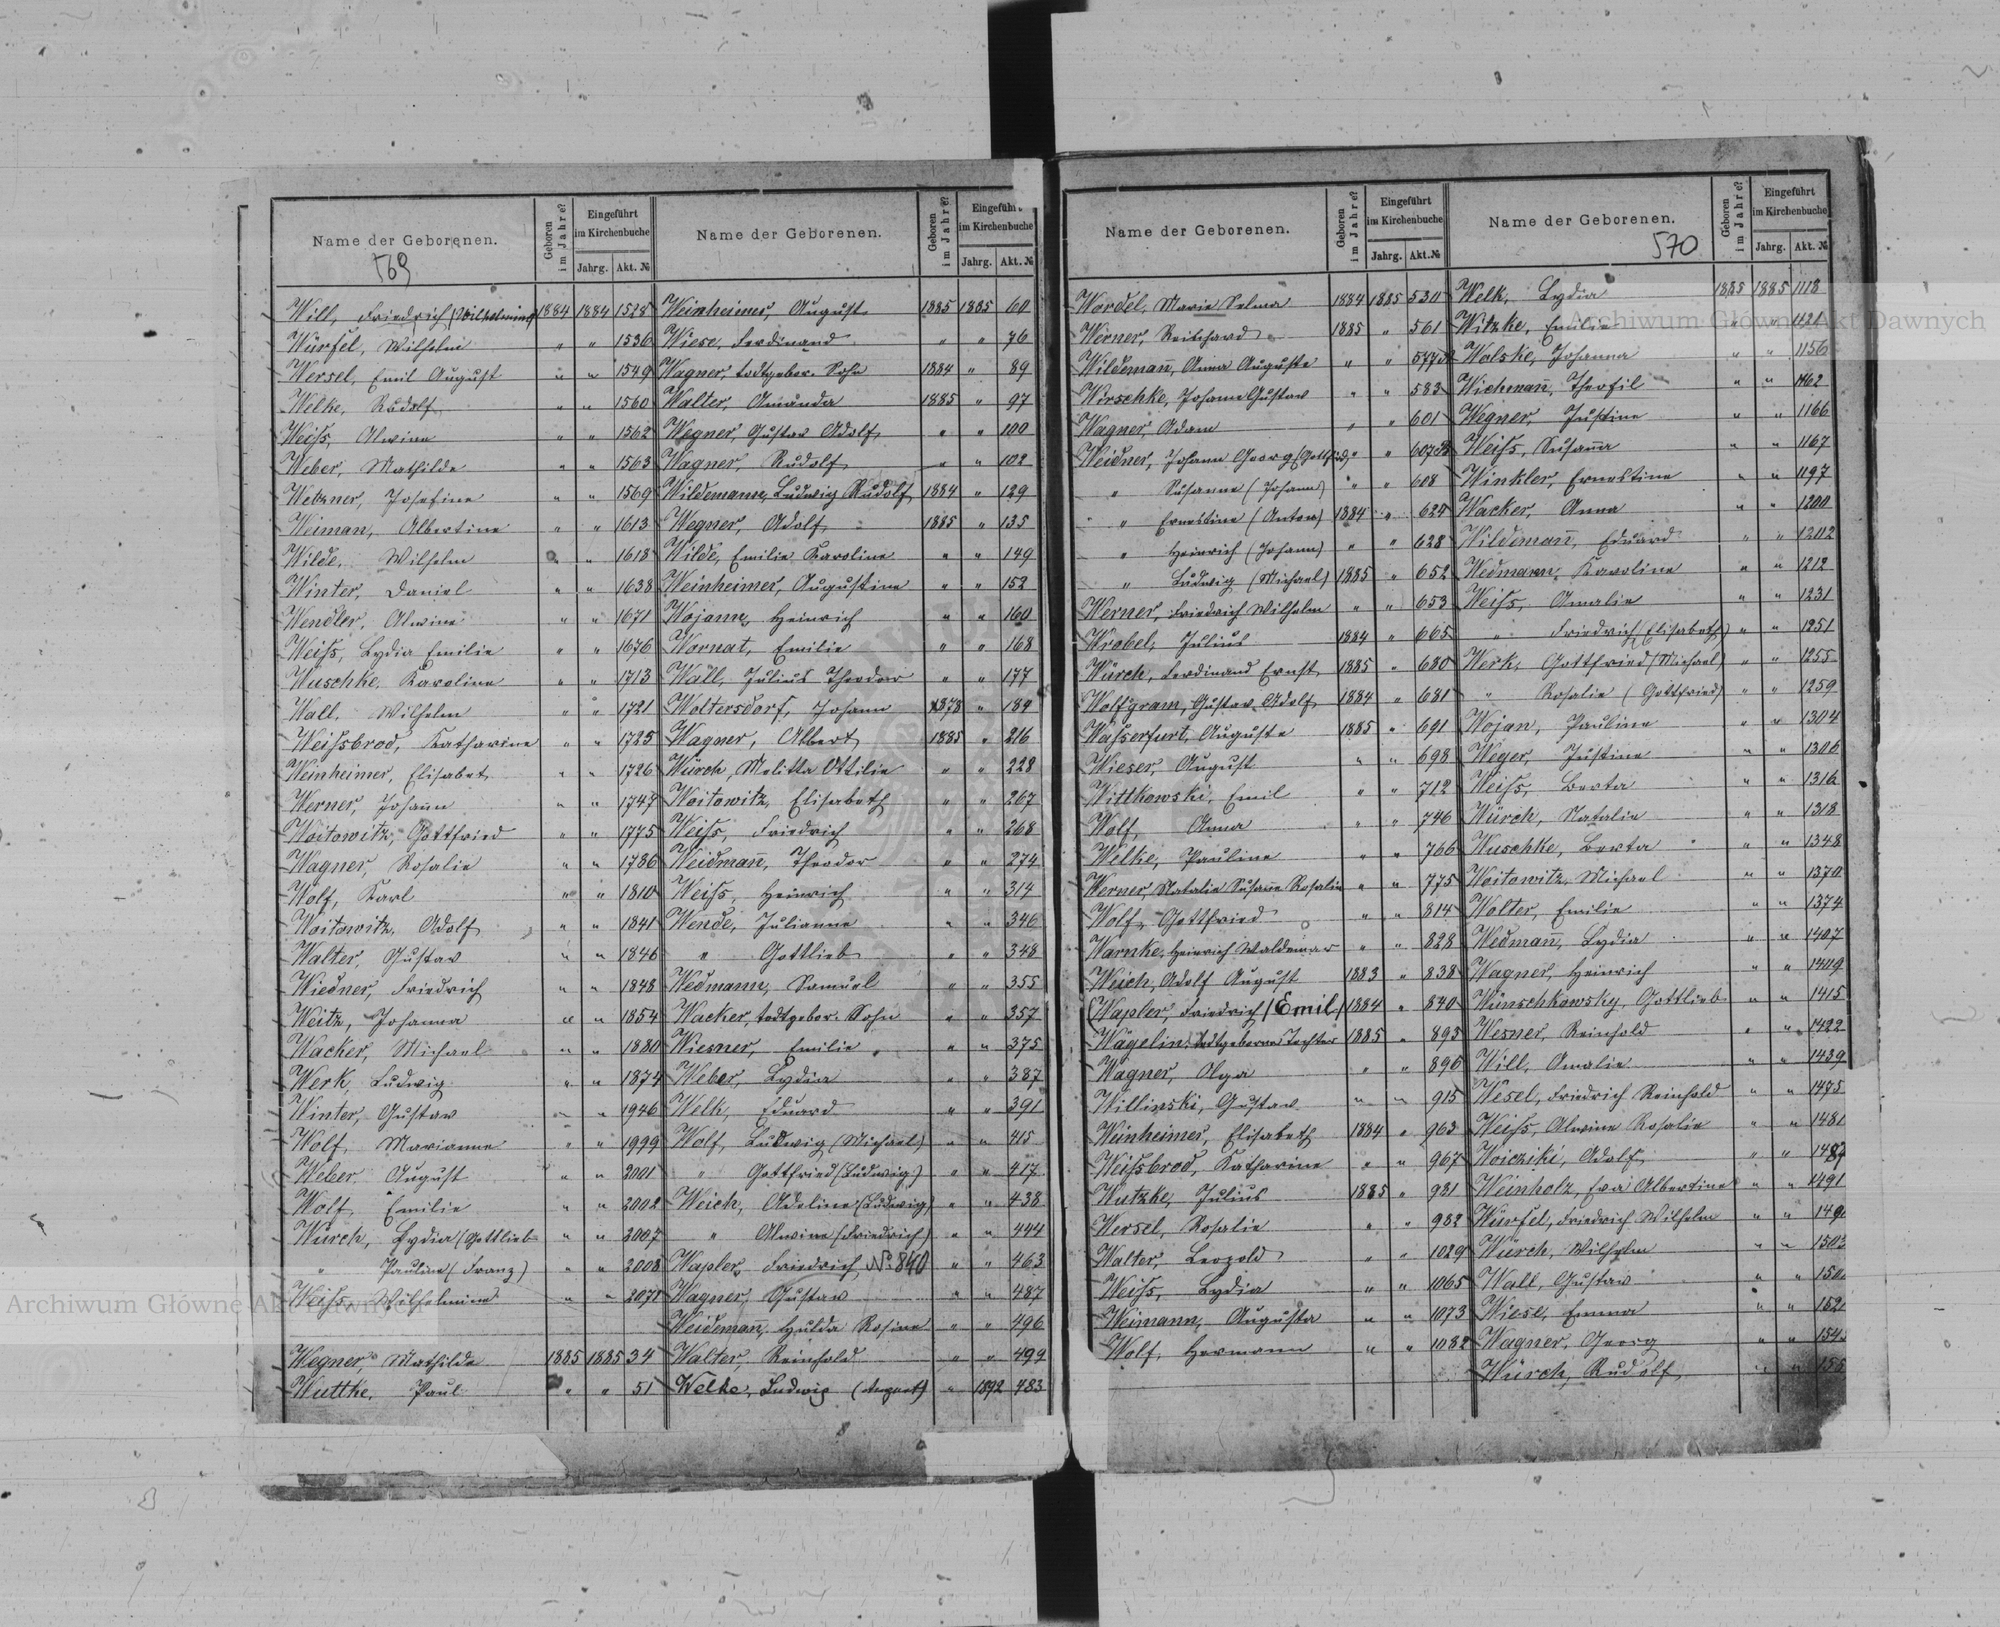 Name der Geborenen.
Geboren im Jahre?
Eingeführt im Kirchenbuche
Jahrg. Akt. №
569
Will, Friedrich (Wilhelmine) 1884 1884 1528
Würfel, Wilhelm " " 1536
Wersel, Emil August " " 1549
Welke, Rudolf " " 1560
Weiss, Alwine " " 1562
Weber, Mathilde " " 1563
Wetzner, Josefine " " 1569
Weiman, Albertine " " 1613
Wilde, Wilhelm " " 1618
Winter, Daniel " " 1638
Wendler, Alwine " " 1671
Weiss, Lydia Emilie " " 1676
Wuschke, Karoline " " 1713
Wall, Wilhelm " " 1721
Weissbrod, Katharine " " 1725
Weinheimer, Elisabet " " 1726
Werner, Johann " " 1747
Woitowitz, Gottfried " " 1775
Wagner, Rosalie " " 1786
Wolf, Karl " " 1810
Woitowitz, Adolf " " 1841
Walter, Gustav " " 1846
Wiedner, Friedrich " " 1848
Weitz, Johanna " " 1854
Wacker, Michael " " 1880
Werk, Ludwig " " 1874
Winter, Gustav " " 1946
Wolf, Marianne " " 1999
Weber, August " " 2001
Wolf, Emilie " " 2002
Würch, Lydia (Gottlieb " " 2007
" Pauline (Franz) " " 2008
Weiss, Wilhelmine " " 2071
Wegner Mathilde 1885 1885 34
Wuttke, Paul " " 51
Name der Geborenen.
Geboren im Jahre?
Eingeführt im Kirchenbuche
Jahrg. Akt. №
Weinheimer, August 1885 1885 60
Wiese, Ferdinand " " 76
Wagner, todtgebor. Sohn 1884 " 89
Walter, Amanda 1885 " 97
Wegner, Gustav Adolf " " 100
Wagner, Rudolf " " 102
Wildemann, Ludwig Rudolf 1884 " 129
Wegner, Adolf 1885 " 135
Wilde, Emilie Karoline " " 149
Weinheimer, Augustine " " 152
Wojann, Heinrich " " 160
Wornat, Emilie " " 168
Wall, Julius Theodor " " 177
Woltersdorf, Johann 1878 " 184
Wagner, Albert 1885 " 216
Würch, Melitta Ottilie " " 228
Woitowitz, Elisabeth " " 267
Weiss, Friedrich " " 268
Weidmañ, Theodor " " 274
Weiss, Heinrich " " 314
Wende, Julianne " " 346
" Gottlieb " " 348
Wedmann, Samuel " " 355
Wacker, todtgebor. Sohn " " 357
Wiesner, Emilie " " 375
Weber, Lydia " " 387
Welk, Eduard " " 391
Wolf, Ludwig (Michael) " " 415
" Gottfried (Ludwig) " " 417
Weich, Adeline (Ludwig) " " 438
" Alwine (Friedrich) " " 444
Wapler, Friedrich № 840 " " 463
Wagner, Gustav " " 487
Weidemañ, Hulda Rosine " " 496
Walter, Reinhold " " 499
Welke, Ludwig (August) " 1892 783
Name der Geborenen.
Geboren im Jahre?
Eingeführt im Kirchenbuche
Jahrg. Akt. №
Wordel, Marie Selma 1884 1885 530
Werner, Reinhard 1885 " 561
Wildemañ, Anna Auguste " " 577
Wirschke, Johann Gustav " " 583
Wagner, Adam " " 601
Weidner, Johann Georg (Gottfried) " " 607
" Susanne (Johann) " " 608
" Ernestine (Anton) 1884 " 624
" Heinrich (Johann) " " 628
" Ludwig (Michael) 1885 " 652
Werner, Friedrich Wilhelm " " 653
Wrobel, Julius 1884 " 665
Würch, Ferdinand Ernst 1885 " 680
Wolfgram, Gustav Adolf 1884 " 681
Wasserfurt, Auguste 1885 " 691
Wieser, August " " 698
Wittkowski, Emil " " 712
Wolf, Anna " " 746
Welke, Pauline " " 766
Werner, Natalie Susañe Rosalie " " 775
Wolf, Gottfried " " 814
Warnke, Heinrich Waldemar " " 828
Weich, Adolf August 1883 " 838
(Wapler Friedrich /Emil/ 1884 " 840
Wägelin, todtgeborne Tochter 1885 " 893
Wagner, Olga " " 896
Willinski, Gustav " " 915
Weinheimer, Elisabeth 1884 " 963
Weissbrod, Katharine " " 967
Wutzke, Julius 1885 " 981
Wersel, Rosalie " " 982
Walter, Leopold " " 1029
Weiss, Lydia " " 1065
Weimann, Augusta " " 1073
Wolf, Hermann " " 1082
Name der Geborenen.
Geboren im Jahre?
Eingeführt im Kirchenbuche
Jahrg. Akt. №
570
Welk, Lydia 1885 1885 1118
Witzke, Emilie " " 1121
Walske, Johanna " " 1156
Wichmañ, Theofil " " 1162
Wegner, Justine " " 1166
Weiss, Susaña " " 1167
Winkler, Ernestine " " 1197
Wacker, Anna " " 1200
Wildemañ, Eduard " " 1202
Wedmann, Karoline " " 1212
Weiss, Amalie " " 1231
" Friedrich (Elisabeth) " " 1251
Werk, Gottfried (Michael) " " 1255
" Rosalie (Gottfried) " " 1259
Wojan, Pauline " " 1304
Weger, Justine " " 1306
Weiss, Berta " " 1316
Würch, Natalie " " 1318
Wuschke, Berta " " 1348
Woitowitz, Michael " " 1370
Wolter, Emilie " " 1374
Wedmañ, Lydia " " 1407
Wagner, Heinrich " " 1409
Wünschkowsky, Gottlieb " " 1415
Wesner, Reinhold " " 1422
Will, Amalie " " 1439
Wesel, Friedrich Reinhold " " 1475
Weiss, Alwine Rosalie " " 1481
Woiciki, Adolf " "
Weinholz, Eva Albertine " " 1491
Würfel, Friedrich Wilhelm " " 149
Würch, Wilhelm " " 1503
Wall, Gustav " " 150
Wiese, Emma " " 152
Wagner, Georg " " 154
Würch, Rudolf " " 155
Archiwum Główne Akt Dawnych
Archiwum Główne Akt Dawnych